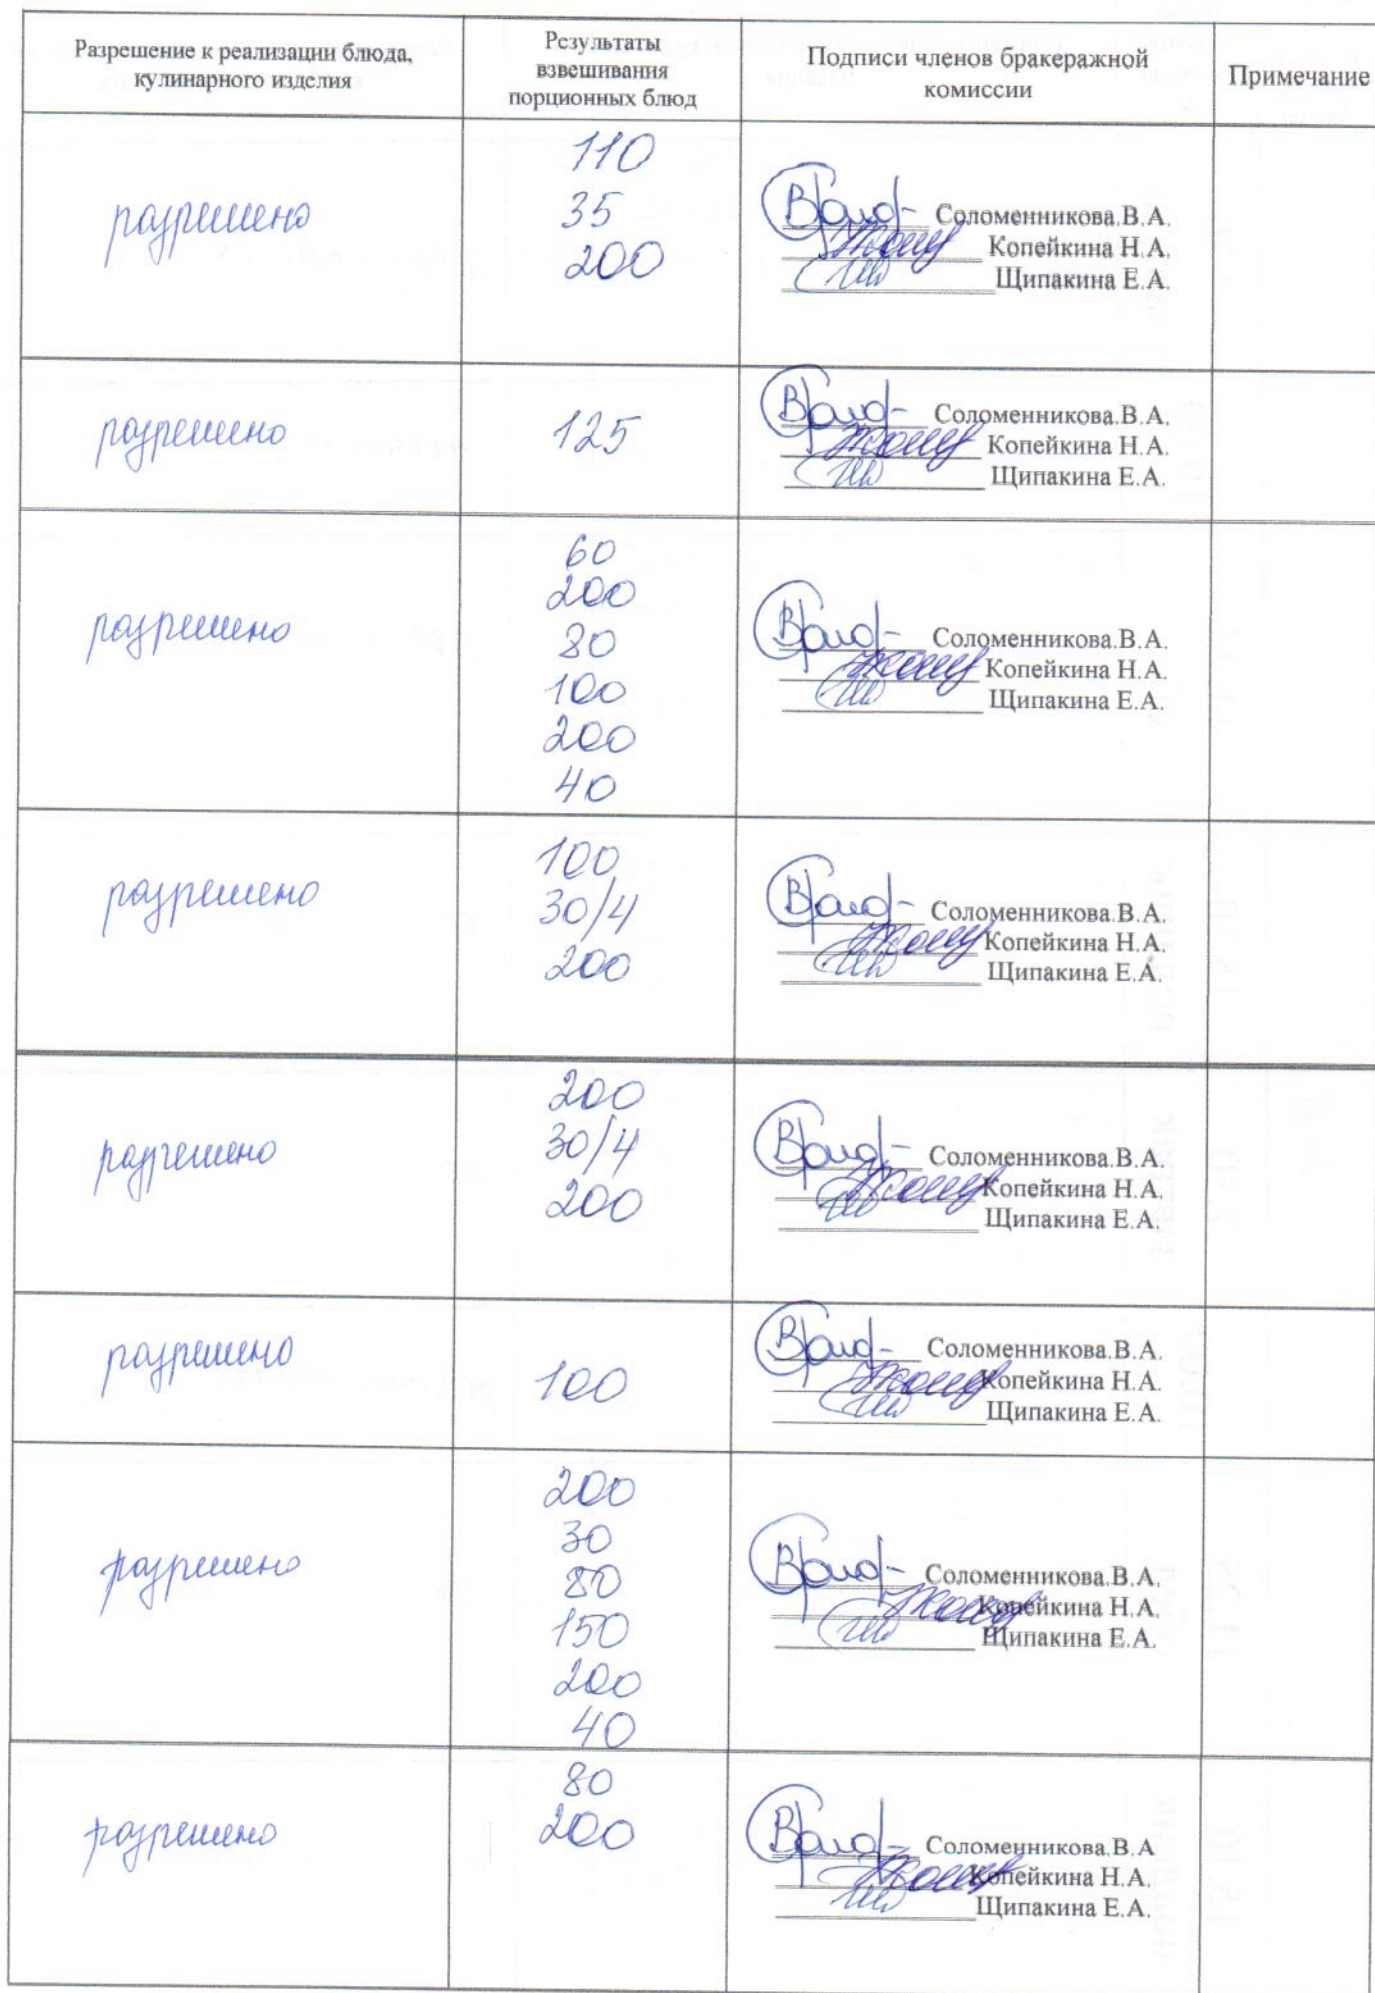 Разрешение к реализации блюда,
кулинарного изделия
Результаты
взвешивания
порционных блюд
Подписи членов бракеражной
комиссии
Примечание
разрешено
110
35
200
Соломенникова.В.А.
Копейкина Н.А.
Щипакина Е.А.
разрешено
125
Соломенникова.В.А.
Копейкина Н.А.
Щипакина Е.А.
разрешено
60
200
80
100
200
40
Соломенникова.В.А.
Копейкина Н.А.
Щипакина Е.А.
разрешено
100
30/4
200
Соломенникова.В.А.
Копейкина Н.А.
Щипакина Е.А.
разрешено
200
30/4
200
Соломенникова.В.А.
Копейкина Н.А.
Щипакина Е.А.
разрешено
100
Соломенникова.В.А.
Копейкина Н.А.
Щипакина Е.А.
разрешено
200
30
80
150
200
40
Соломенникова.В.А.
Копейкина Н.А.
Щипакина Е.А.
разрешено
80
200
Соломенникова.В.А
Копейкина Н.А.
Щипакина Е.А.